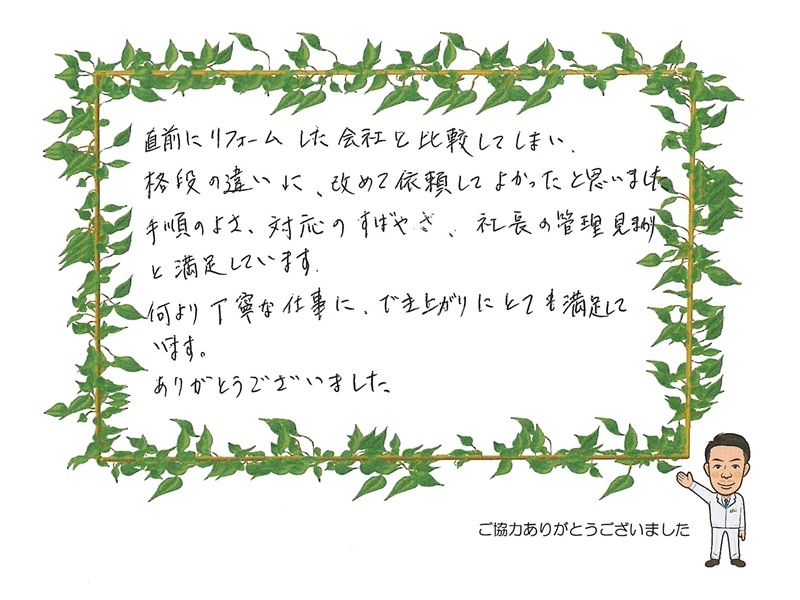 直前にリフォームした会社と比較してしまい、
格段の違いに、改めて依頼してよかったと思いました
手順のよさ、対応のすばやさ、社長の管理見まわり
と満足しています。
何より丁寧な仕事に、でき上がりにとても満足して
います。
ありがとうございました。
ご協力ありがとうございました